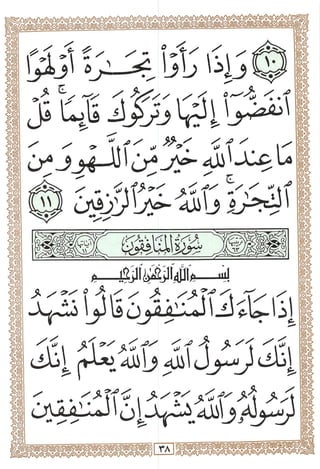 ١٠ وَإِذَا رَأَوْا۟ تِجَـٰرَةً أَوْ لَهْوًا
ٱنفَضُّوٓا۟ إِلَيْهَا وَتَرَكُوكَ قَآئِمًا ۚ قُلْ
مَا عِندَ ٱللَّهِ خَيْرٌ مِّنَ ٱللَّهْوِ وَمِنَ
ٱلتِّجَـٰرَةِ ۚ وَٱللَّهُ خَيْرُ ٱلرَّٰزِقِينَ ١١
سُورَةُ المنَافِقُون
بِسْمِ ٱللَّهِ ٱلرَّحْمَـٰنِ ٱلرَّحِيمِ
إِذَا جَآءَكَ ٱلْمُنَـٰفِقُونَ قَالُوا۟ نَشْهَدُ
إِنَّكَ لَرَسُولُ ٱللَّهِ وَٱللَّهُ يَعْلَمُ إِنَّكَ
لَرَسُولُهُۥ وَٱللَّهُ يَشْهَدُ إِنَّ ٱلْمُنَـٰفِقِينَ
٣٨